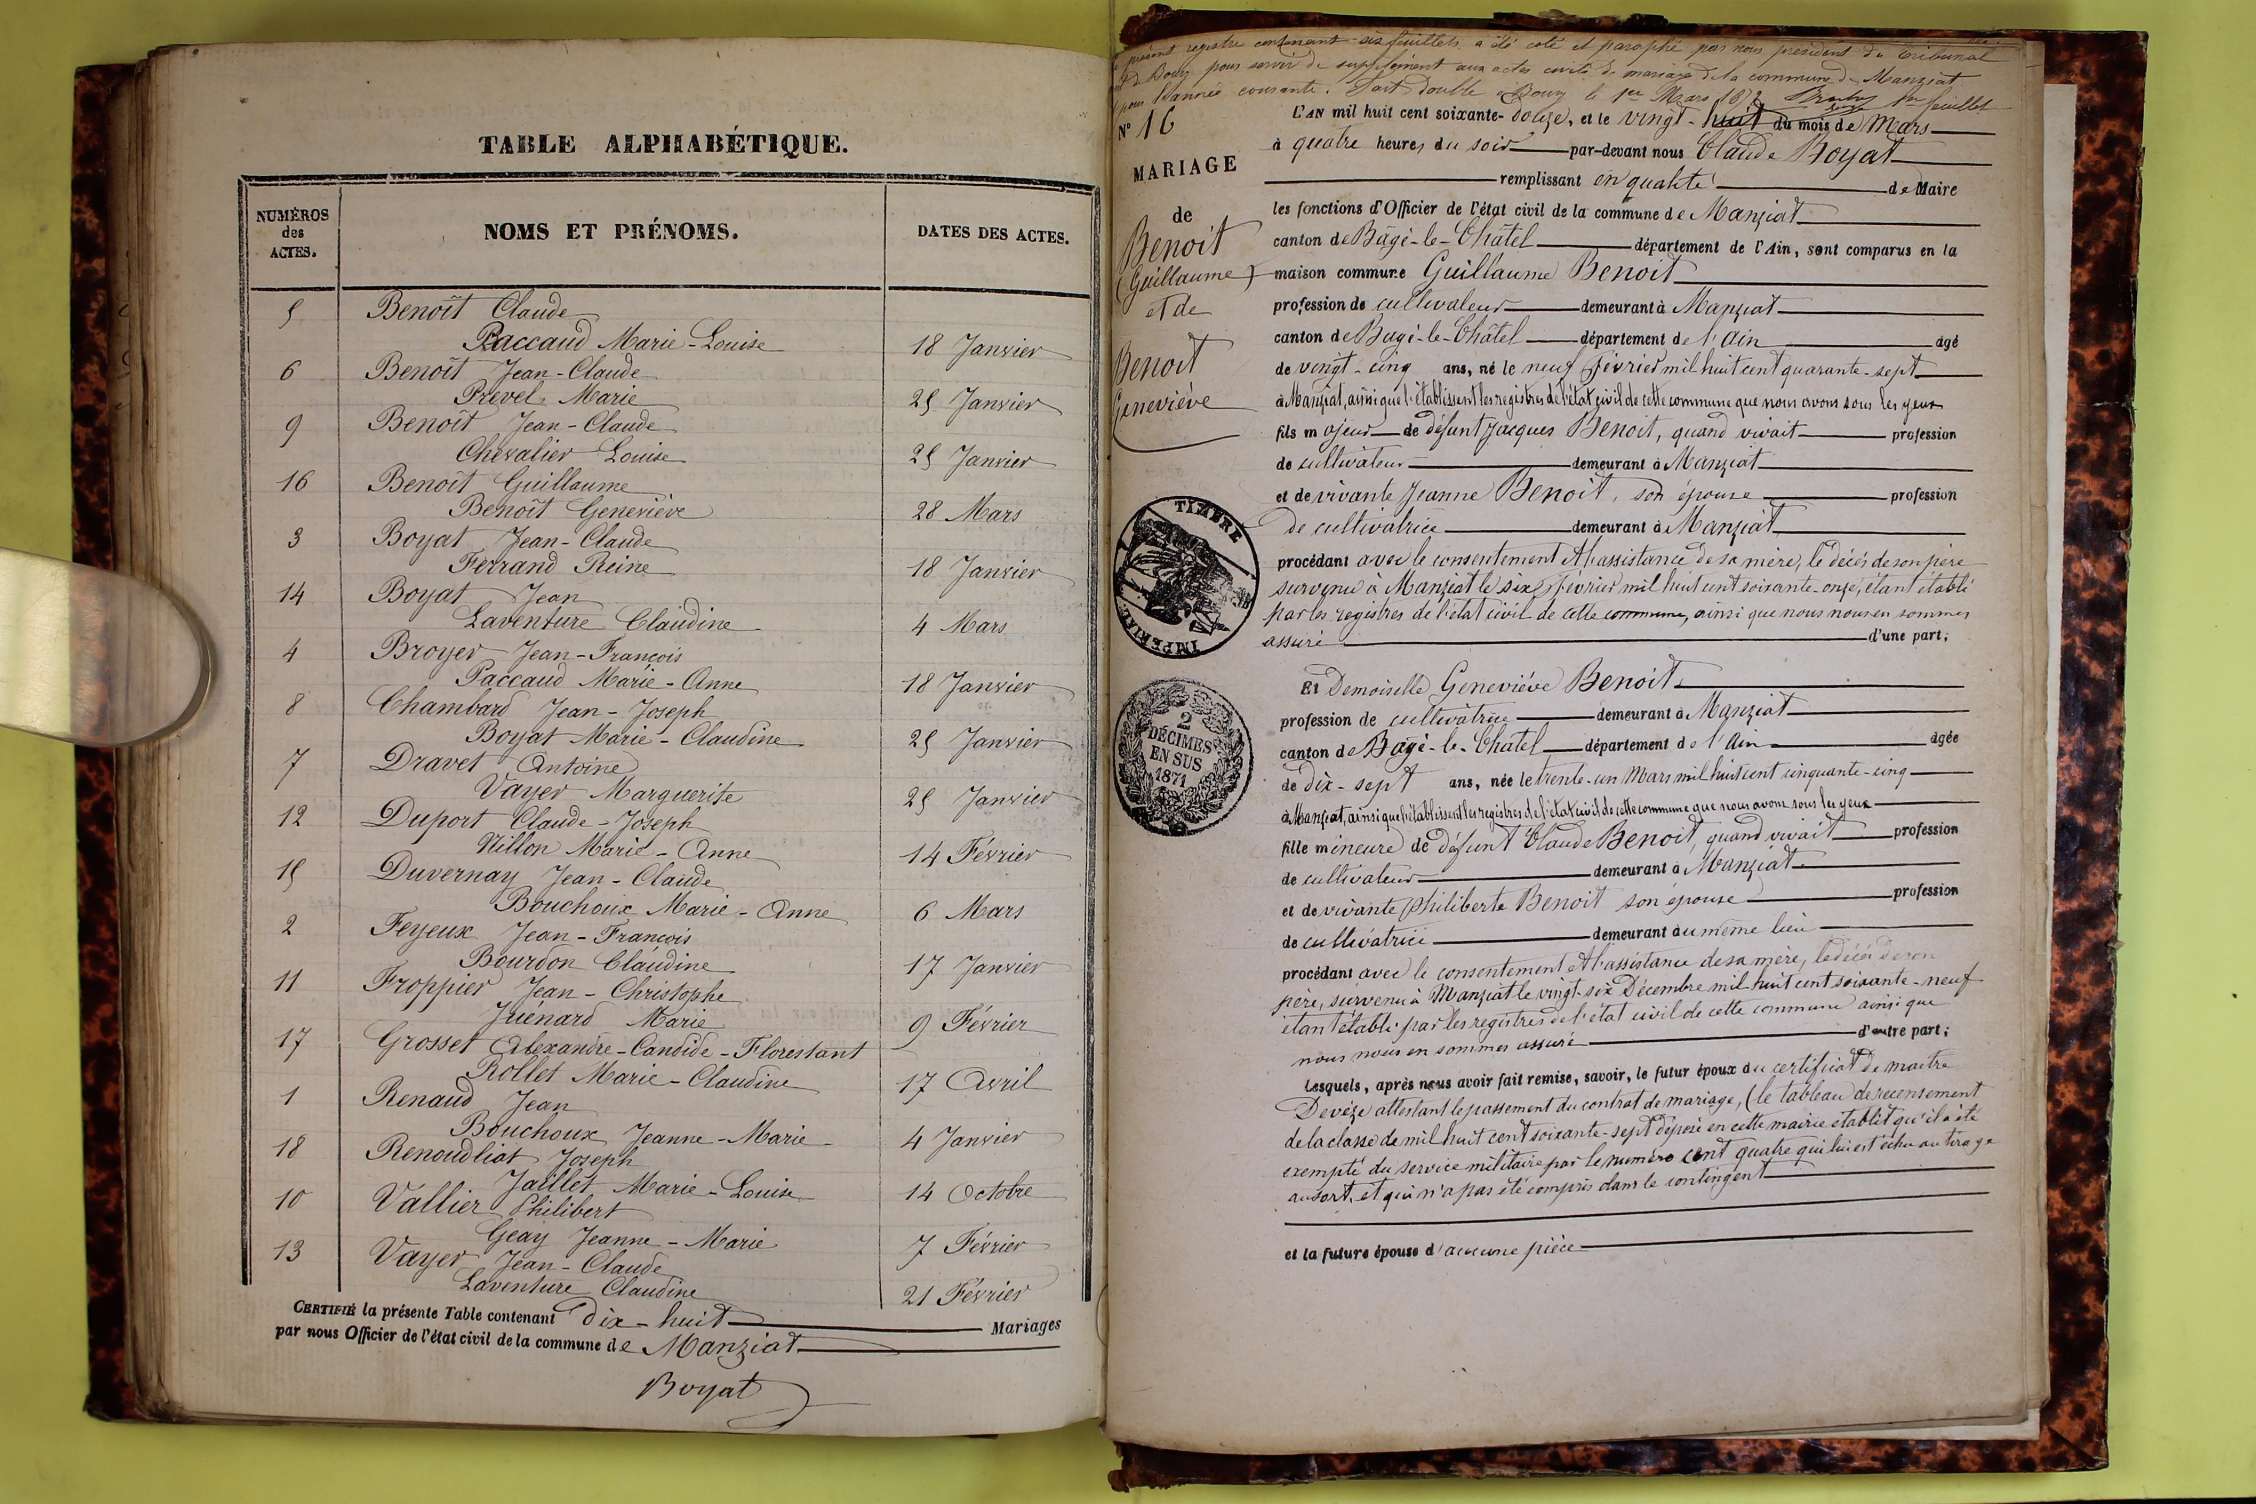 TABLE ALPHABÉTIQUE.
NUMÉROS des ACTES.
NOMS ET PRÉNOMS.
DATES DES ACTES.
5 Benoît Claude
Paccaud Marie-Louise 18 Janvier
6 Benoît Jean-Claude
Prevel Marie 25 Janvier
9 Benoît Jean-Claude
Chevalier Louise 25 Janvier
16 Benoît Guillaume
Benoît Geneviève 28 Mars
3 Boyat Jean-Claude
Ferrand Reine 18 Janvier
14 Boyat Jean
Laventure Claudine 4 Mars
4 Broyer Jean-François
Paccaud Marie-Anne 18 Janvier
8 Chambard Jean-Joseph
Boyat Marie-Claudine 25 Janvier
7 Dravet Antoine
Vayer Marguerite 25 Janvier
12 Duport Claude-Joseph
Nillon Marie-Anne 14 Février
15 Duvernay Jean-Claude
Bouchoux Marie-Anne 6 Mars
2 Feyeux Jean-François
Bourdon Claudine 17 Janvier
11 Froppier Jean-Christophe
Juénard Marie 9 Février
17 Grosset Alexandre-Candide-Florestant
Rollet Marie-Claudine 17 Avril
1 Renaud Jean
Bouchoux Jeanne-Marie 4 Janvier
18 Renoudliat Joseph
Jaillet Marie-Louise 14 Octobre
10 Vallier Philibert
Geay Jeanne-Marie 7 Février
13 Vayer Jean-Claude
Laventure Claudine 21 Février
CERTIFIÉ la présente Table contenant dix-huit Mariages
par nous Officier de l'état civil de la commune de Manziat
Boyat
présent registre contenant six feuillets a été coté et paraphé par nous président du Tribunal
de Bourg pour servir de supplément aux actes civils de mariage de la commune de Manziat
pour l'année courante. Fait double à Bourg le 1er Mars 1872 1er feuillet
N° 16
MARIAGE
de
Benoit
(Guillaume)
et de
Benoit
Geneviève
TIMBRE IMPÉRIAL
2 DÉCIMES EN SUS 1871
L'AN mil huit cent soixante-douze, et le vingt-huit du mois de Mars
à quatre heures du soir par-devant nous Claude Boyat
remplissant en qualité de Maire
les fonctions d'Officier de l'état civil de la commune de Manziat
canton de Bâgé-le-Châtel département de l'Ain, sont comparus en la
maison commune Guillaume Benoit
profession de cultivateur demeurant à Manziat
canton de Bâgé-le-Châtel département de l'Ain âgé
de vingt-cinq ans, né le neuf Février mil huit cent quarante-sept
à Manziat, ainsi que l'établissent les registres de l'état civil de cette commune que nous avons sous les yeux
fils majeur de défunt Jacques Benoit, quand vivait profession
de cultivateur demeurant à Manziat
et de vivante Jeanne Benoit, son épouse profession
de cultivatrice demeurant à Manziat
procédant avec le consentement et l'assistance de sa mère, le décès de son père
survenu à Manziat le six Février mil huit cent soixante-onze, étant établi
par les registres de l'état civil de cette commune, ainsi que nous nous en sommes
assuré d'une part;
Et Demoiselle Geneviève Benoit
profession de cultivatrice demeurant à Manziat
canton de Bâgé-le-Châtel département de l'Ain âgée
de dix-sept ans, née le trente-un Mars mil huit cent cinquante-cinq
à Manziat, ainsi que l'établissent les registres de l'état civil de cette commune que nous avons sous les yeux
fille mineure de défunt Claude Benoit, quand vivait profession
de cultivateur demeurant à Manziat
et de vivante Philiberte Benoit son épouse profession
de cultivatrice demeurant au même lieu
procédant avec le consentement et l'assistance de sa mère, le décès de son
père, survenu à Manziat le vingt-six Décembre mil huit cent soixante-neuf
étant établi par les registres de l'état civil de cette commune ainsi que
nous nous en sommes assuré d'autre part;
Lesquels, après nous avoir fait remise, savoir, le futur époux du certificat de maître
Devèze attestant le passement du contrat de mariage, (le tableau de recensement
de la classe de mil huit cent soixante-sept déposé en cette mairie établit qu'il a été
exempté du service militaire par le numéro cent quatre qui lui est échu au tirage
au sort, et qui n'a pas été compris dans le contingent
et la future épouse d'aucune pièce